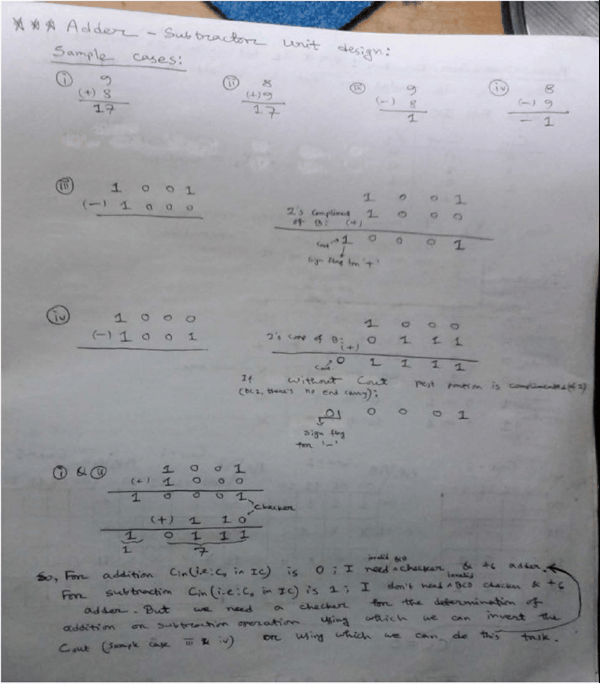 *** Adder - Subtractor unit design:
Sample cases:
(i) 9 (ii) 8 (iii) 9 (iv) 8
(+) 8 (+) 9 (-) 8 (-) 9
17 17 1 - 1
(iii) 1 0 0 1 1 0 0 1
(-) 1 0 0 0 2's compliment 1 0 0 0
of B: (+)
Cout 1 0 0 0 1
sign flag for '+'
(iv) 1 0 0 0 1 0 0 0
(-) 1 0 0 1 2's comp of B: 0 1 1 1
(+)
Cout 0 1 1 1 1
It without Cout rest portion is complimented
(bcz, there's no end carry):
01 0 0 0 1
sign flag
for '-'
(i) & (ii) 1 0 0 1
(+) 1 0 0 0
1 0 0 0 1
checker
(+) 1 1 0
1 0 1 1 1
1 7
invalid BCD
So, For addition Cin (i.e: C0 in IC) is 0; I need checker & +6 adder.
invalid
For subtraction Cin (i.e: C0 in IC) is 1; I don't need BCD checker & +6
adder. But we need a checker for the determination of
addition or subtraction operation using which we can invert the
Cout (sample case iii & iv) or using which we can do this task.